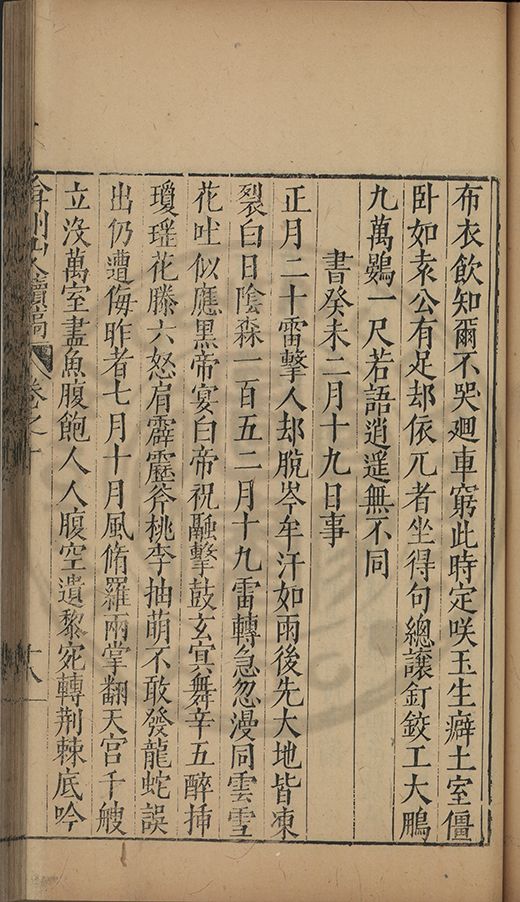 布衣飲知爾不哭廻車窮此時定咲玉生癖土室僵
卧如袁公有足却依兀者坐得句總讓釘鉸工大鵬
九萬鷃一尺若語逍遥無不同
書癸未二月十九日事
正月二十雷擊人却脫岑牟汗如雨後先大地皆凍
裂白日陰森一百五二月十九雷轉急忽漫同雲雪
花吐似應黑帝宴白帝祝融擊鼓玄冥舞辛五醉揷
瓊瑤花滕六怒肩霹靂斧桃李抽萌不敢發龍蛇誤
出仍遭侮昨者七月十月風脩羅兩掌翻天宫千艘
立沒萬室盡魚腹飽人人腹空遺黎宛轉荆棘底吟
弇州山人續稿 卷之十 十八